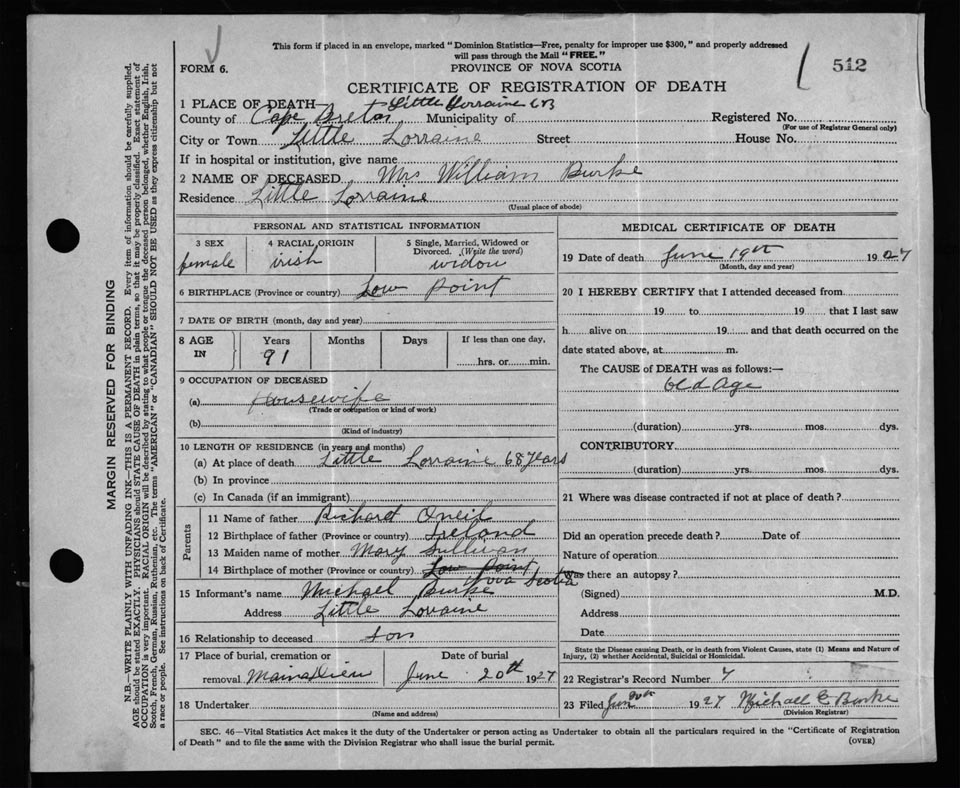 This form if placed in an envelope, marked "Dominion Statistics—Free, penalty for improper use $300," and properly addressed
will pass through the Mail "FREE."
FORM 6. PROVINCE OF NOVA SCOTIA 512
CERTIFICATE OF REGISTRATION OF DEATH
1 PLACE OF DEATH— Little Lorraine CB
County of Cape Breton Municipality of Registered No.
(For use of Registrar General only)
City or Town Little Lorraine Street House No.
If in hospital or institution, give name
2 NAME OF DECEASED Mrs William Burke
Residence Little Lorraine
(Usual place of abode)
PERSONAL AND STATISTICAL INFORMATION
3 SEX 4 RACIAL ORIGIN 5 Single, Married, Widowed or
Divorced. (Write the word)
female irish widow
6 BIRTHPLACE (Province or country) Low Point
7 DATE OF BIRTH (month, day and year)
8 AGE IN Years Months Days If less than one day,
91 hrs. or min.
9 OCCUPATION OF DECEASED
(a) Housewife
(Trade or occupation or kind of work)
(b)
(Kind of industry)
10 LENGTH OF RESIDENCE (in years and months)
(a) At place of death Little Lorraine 68 years
(b) In province
(c) In Canada (if an immigrant)
Parents
11 Name of father Richard Oneil
12 Birthplace of father (Province or country) Ireland
13 Maiden name of mother Mary Sullivan
14 Birthplace of mother (Province or country) Low Point
Nova Scotia
15 Informant's name Michael Burke
Address Little Lorraine
16 Relationship to deceased son
17 Place of burial, cremation or Date of burial
removal Mainadieu June 20th 1927
18 Undertaker
(Name and address)
MEDICAL CERTIFICATE OF DEATH
19 Date of death June 19th 1927
(Month, day and year)
20 I HEREBY CERTIFY that I attended deceased from
19 to 19 that I last saw
h alive on 19 and that death occurred on the
date stated above, at m.
The CAUSE of DEATH was as follows:—
Old Age
(duration) yrs. mos. dys.
CONTRIBUTORY
(duration) yrs. mos. dys.
21 Where was disease contracted if not at place of death?
Did an operation precede death? Date of
Nature of operation
Was there an autopsy?
(Signed) M.D.
Address
Date
State the Disease causing Death, or in death from Violent Causes, state (1) Means and Nature of
Injury, (2) whether Accidental, Suicidal or Homicidal.
22 Registrar's Record Number 7
23 Filed Jun 20th 1927 Michael E Burke
(Division Registrar)
SEC. 46—Vital Statistics Act makes it the duty of the Undertaker or person acting as Undertaker to obtain all the particulars required in the "Certificate of Registration
of Death" and to file the same with the Division Registrar who shall issue the burial permit. (OVER)
MARGIN RESERVED FOR BINDING
N.B.—WRITE PLAINLY WITH UNFADING INK—THIS IS A PERMANENT RECORD. Every item of information should be carefully supplied.
AGE should be stated EXACTLY. PHYSICIANS should STATE CAUSE OF DEATH in plain terms, so that it may be properly classified. Exact statement of
OCCUPATION is very important. RACIAL ORIGIN will be described by stating to what people or tongue the deceased person belonged, whether English, Irish,
Scotch, French, German, Russian, Ruthenian, etc. The terms "AMERICAN" or "CANADIAN" SHOULD NOT BE USED as they express citizenship but not
a race or people. See instructions on back of Certificate.